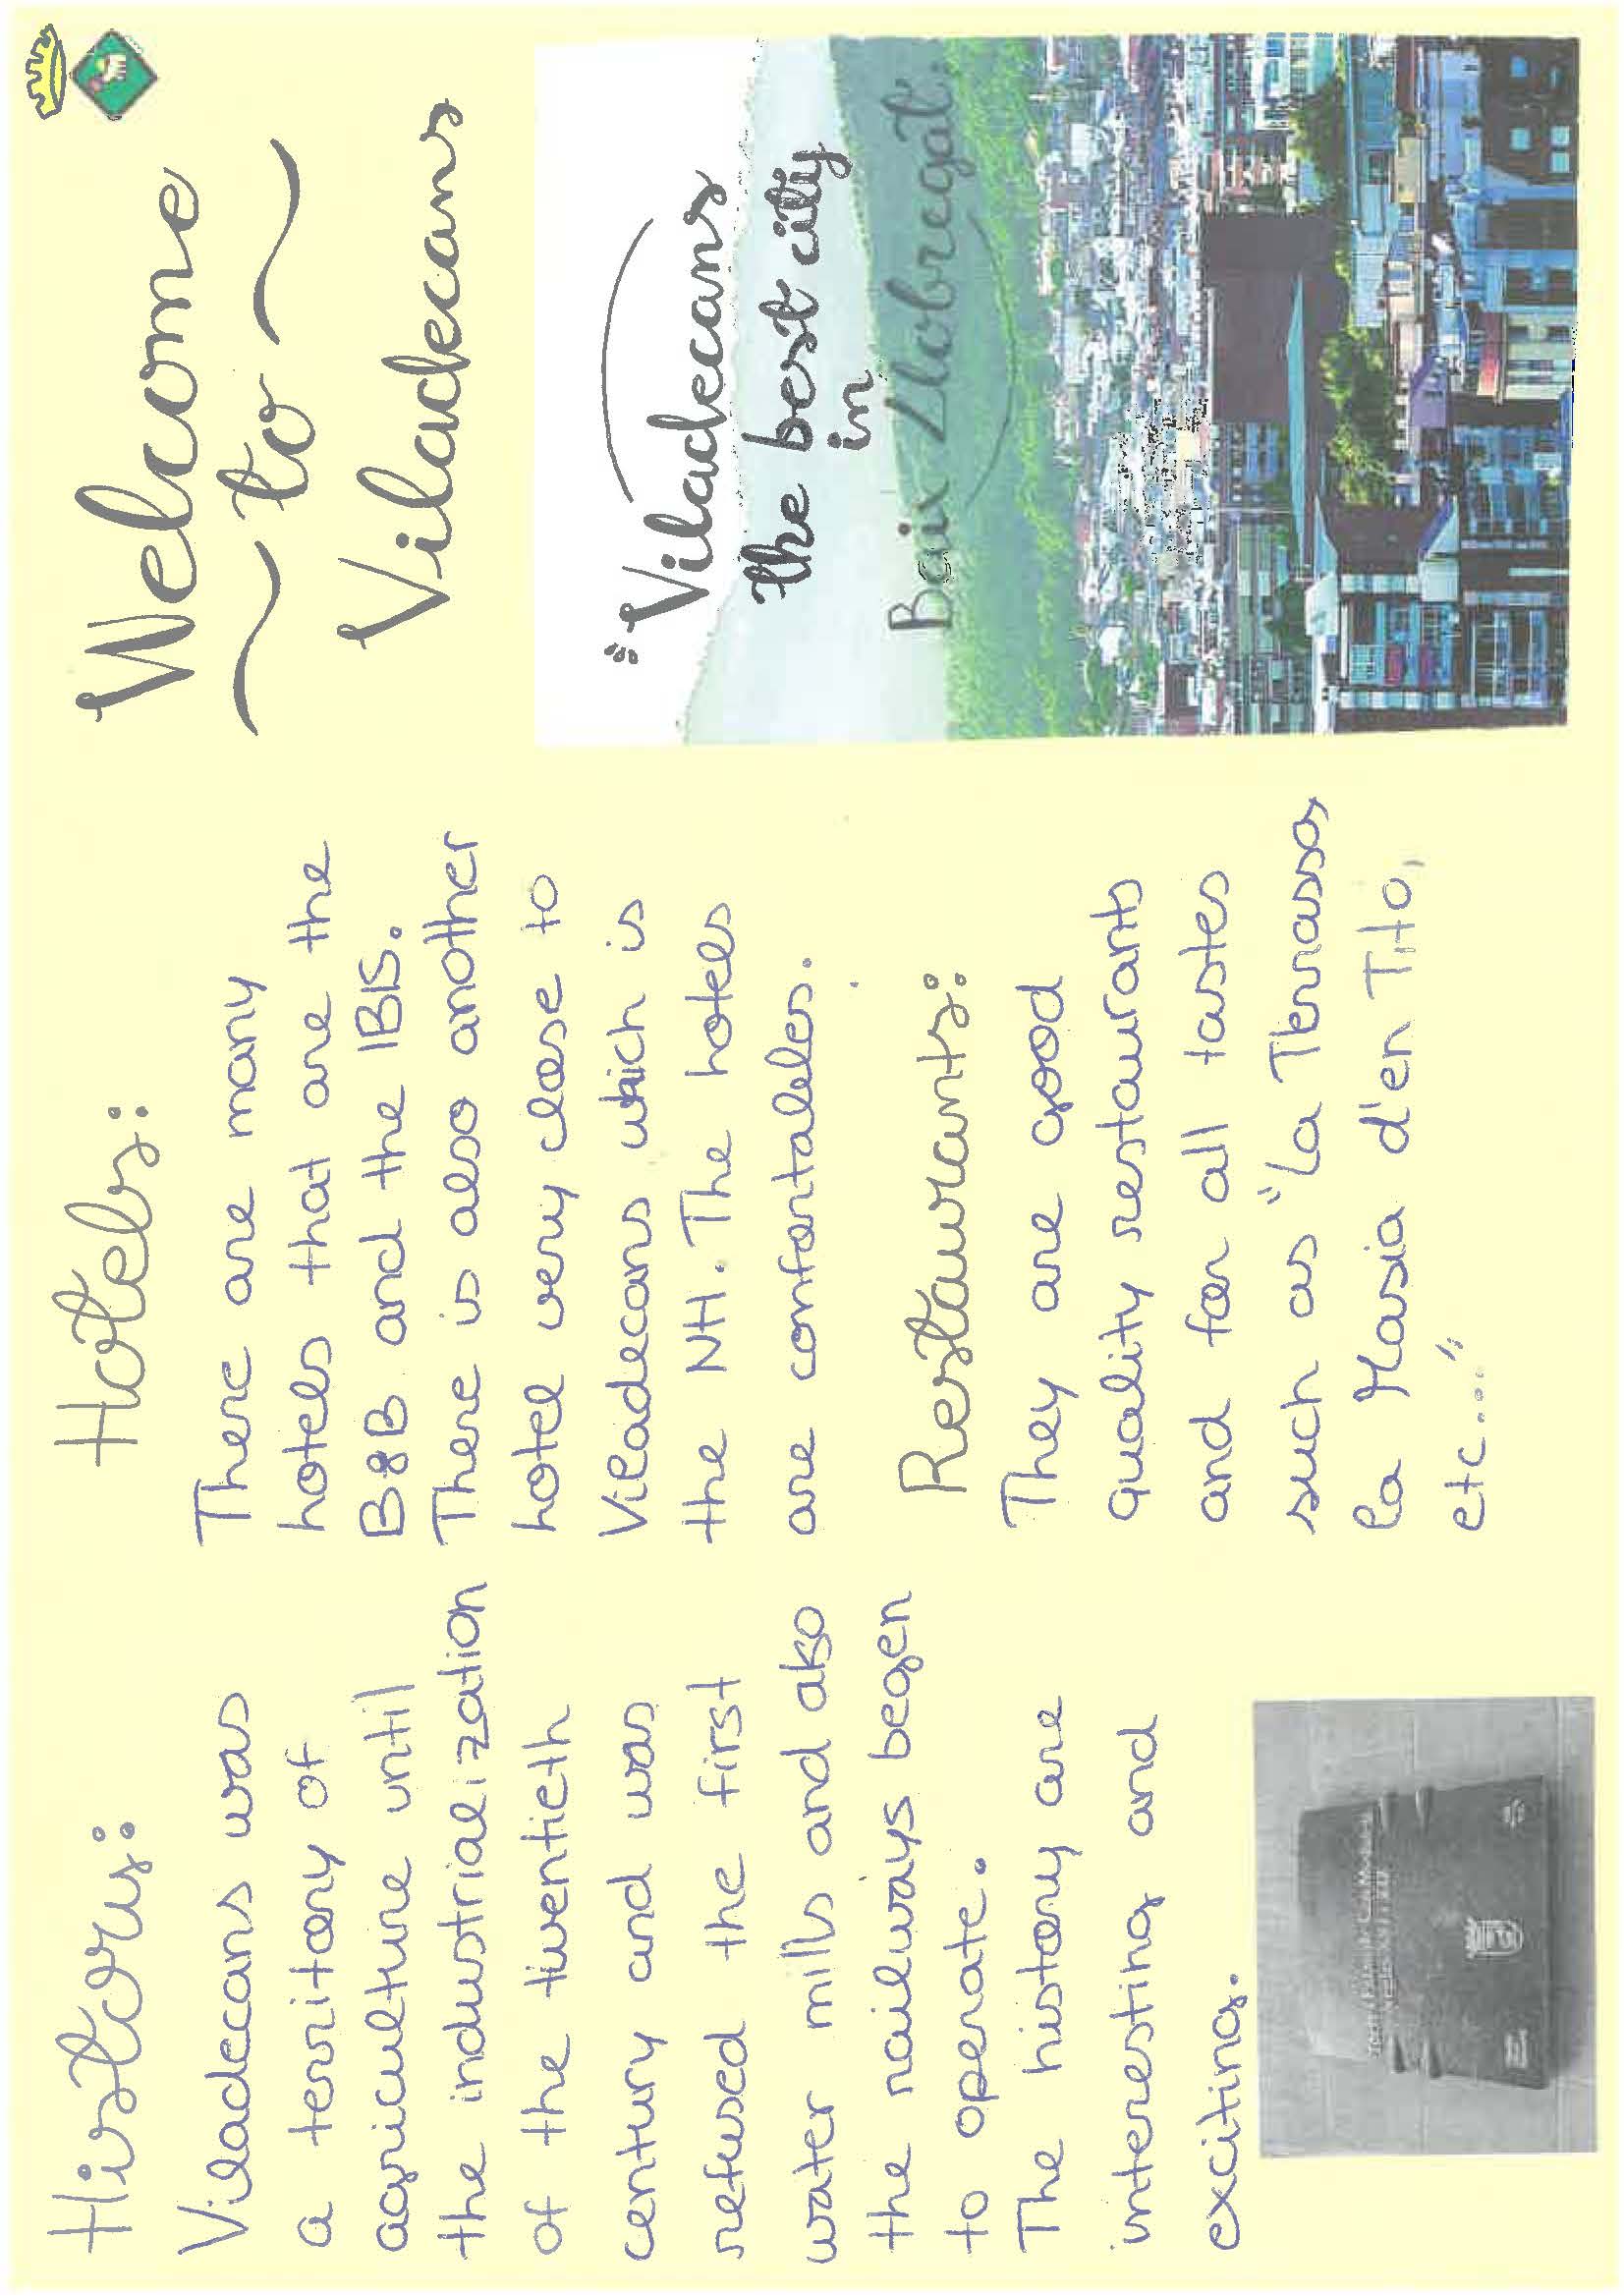 History:
Viladecans was
a territory of
agriculture until
the industrialization
of the twentieth
century and was
refused the first
water mills and also
the railways begen
to operate.
The history are
interesting and
exciting.
Hotels:
There are many
hotels that are the
B&B and the IBIS.
There is also another
hotel very close to
Viladecans which is
the NH. The hotels
are confortables.
Restaurants:
They are good
quality restaurants
and for all tastes
such as "La Terrassa,
la Masia d'en Tito,
etc..."
Welcome
to
Viladecans
"Viladecans
the best city
in
Baix Llobregat.